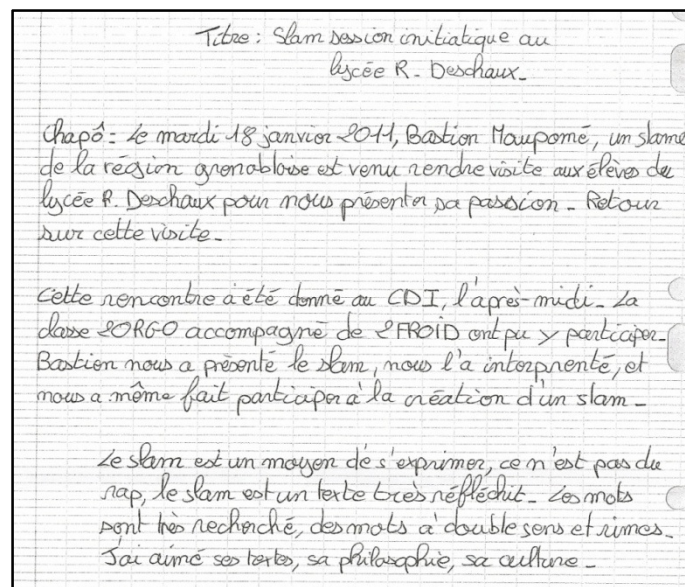 Titre : Slam session initiatique au
lycée R. Deschaux.
Chapô : Le mardi 18 janvier 2011, Bastien Maupomé, un slame
de la région grenobloise est venu rendre visite aux élèves du
lycée R. Deschaux pour nous présenter sa passion. Retour
sur cette visite.
Cette rencontre à été donné au CDI, l'après-midi. La
classe 2ORGO accompagné de 2FROID ont pu y participer.
Bastien nous a présenté le slam, nous l'a interprenté, et
nous a même fait participer à la création d'un slam.
Le slam est un moyen de s'exprimer, ce n'est pas du
rap, le slam est un texte très réfléchit. Les mots
sont très recherché, des mots à double sens et rimes.
J'ai aimé ses textes, sa philosophie, sa culture.